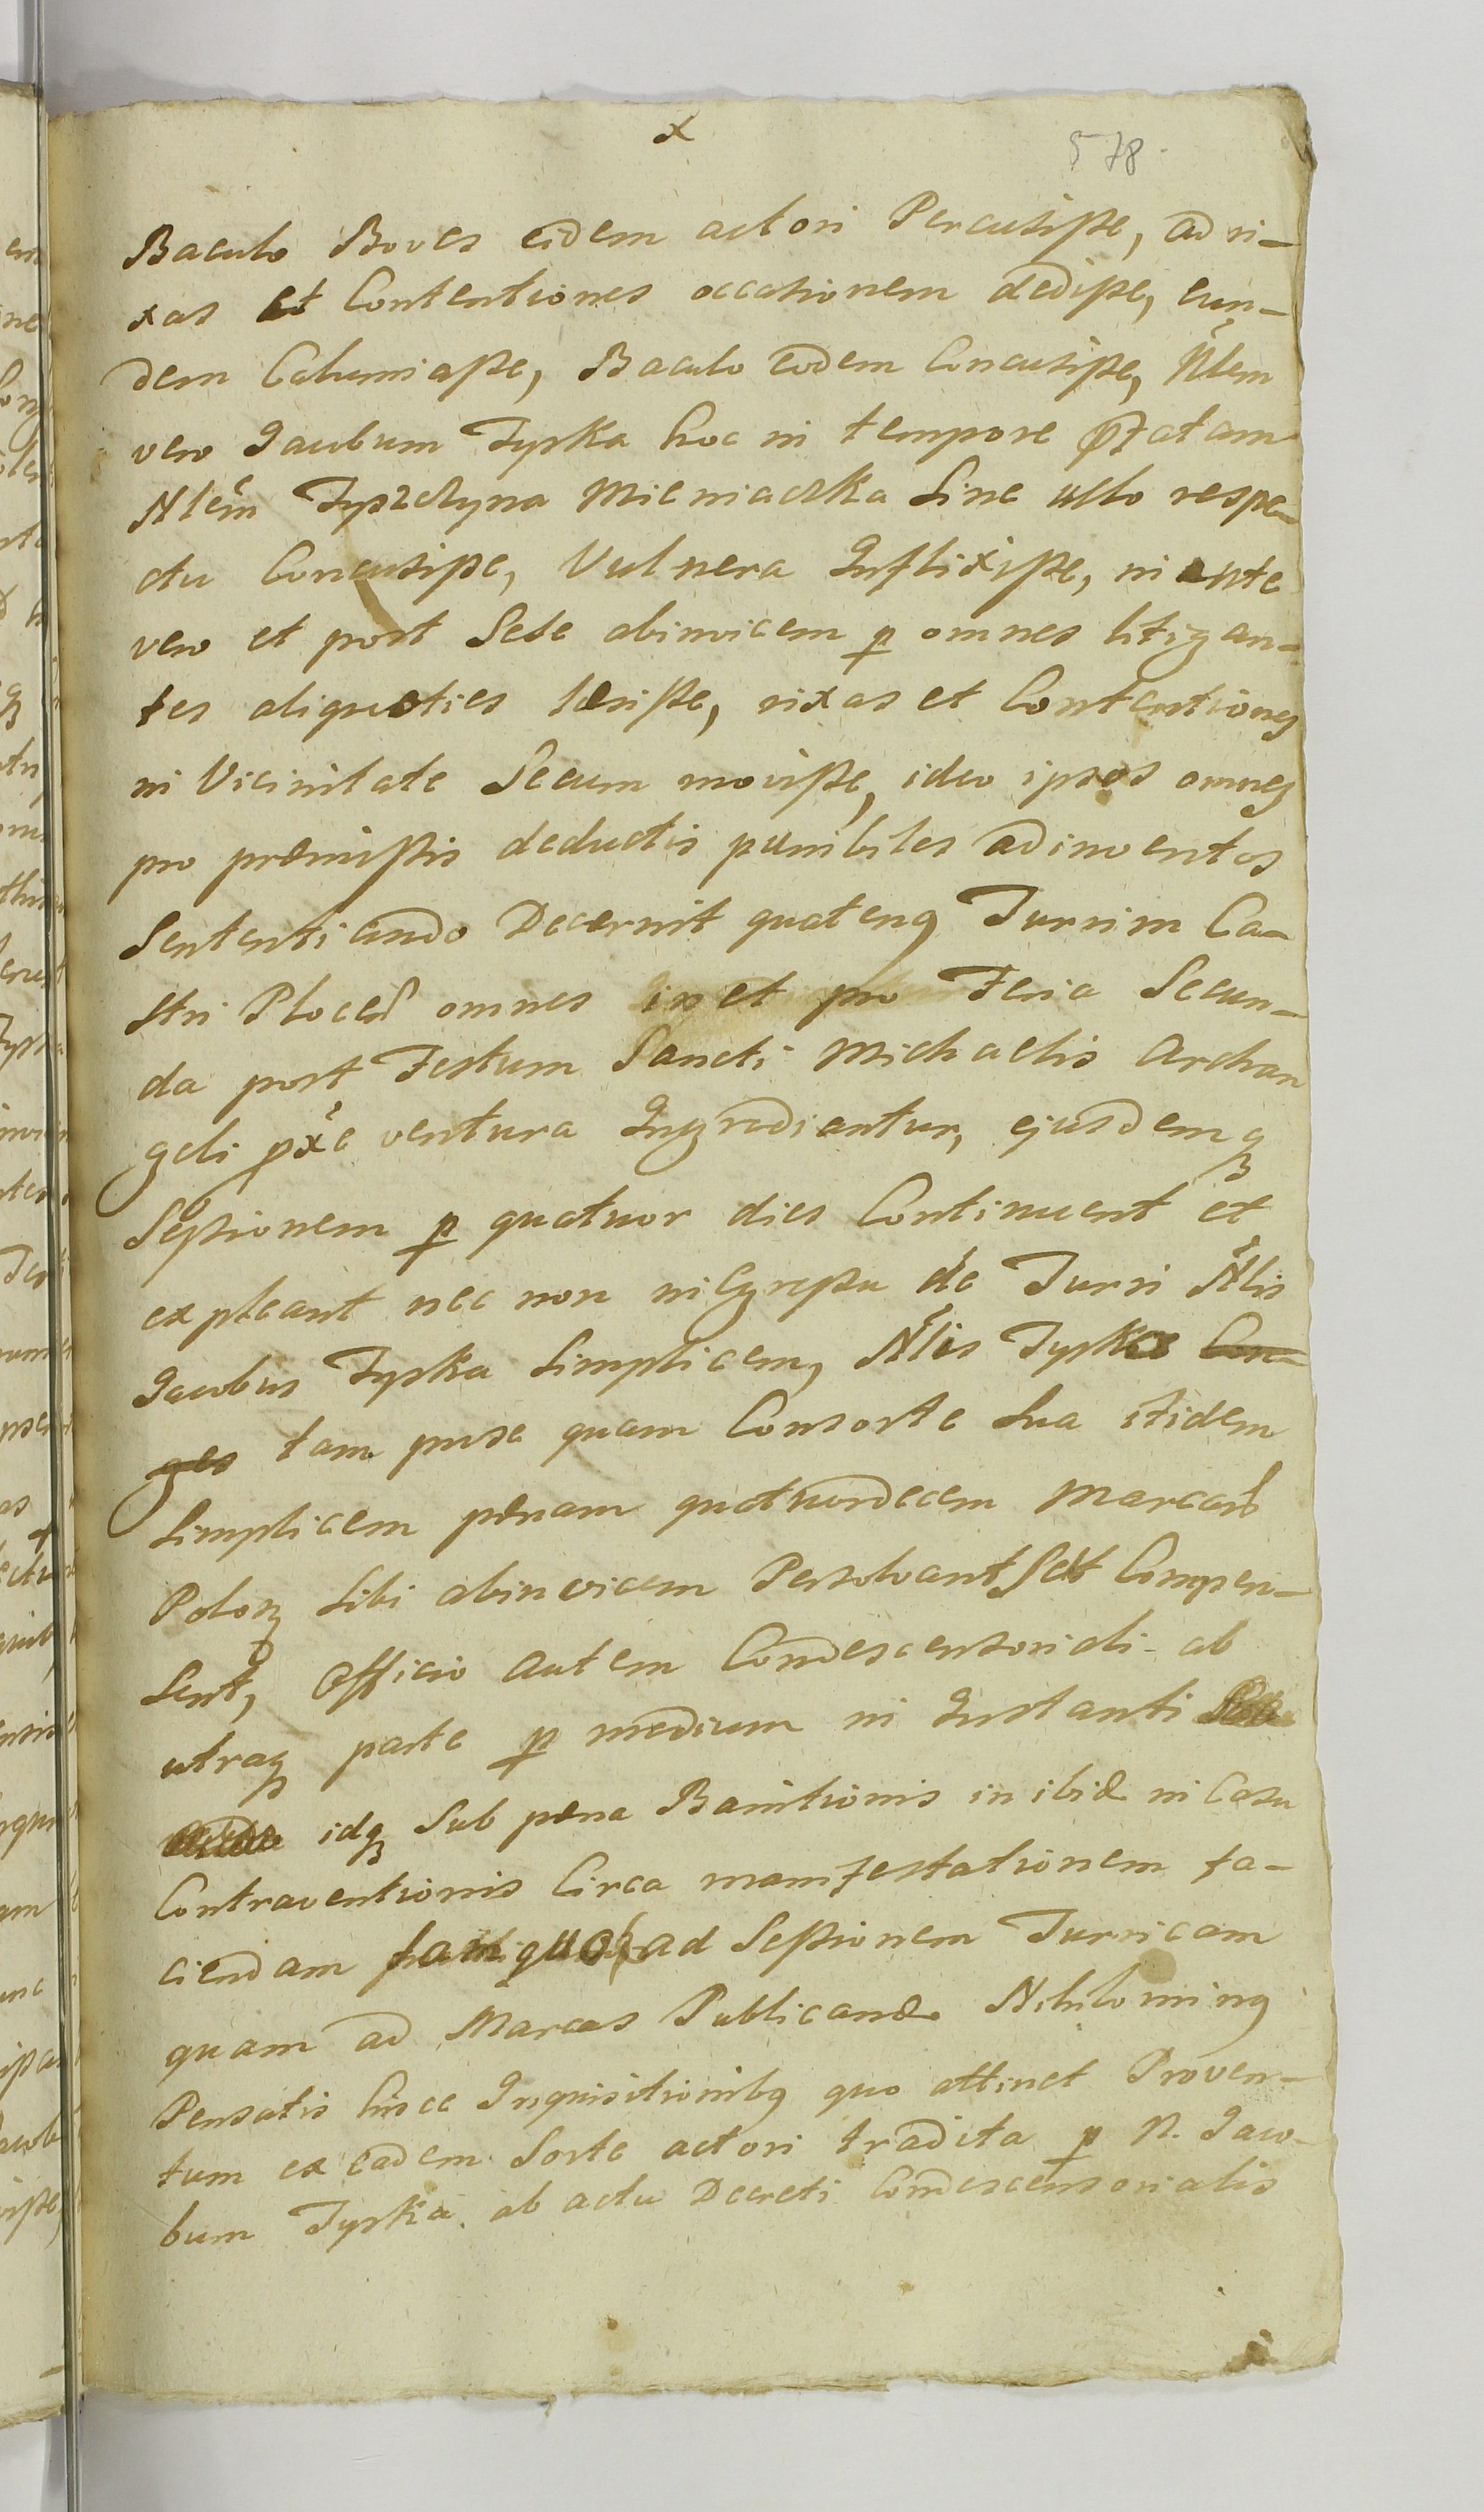 x
578.
Baculo Boves eidem actori Percusisse, ad ri-
xas et Contentiones occationem dedisse, eun-
dem Calumniasse, Baculo eodem Concusisse, Nlem
vero Jacobum Tyska hoc in tempore pfatam
Nlem Tysczyna Mieniacska Sine ullo respe-
ctu Concusisse, Vulnera Inflixisse, in ante
vero et post Sese abinvicem p omnes litigan-
tes aliquoties læsisse, rixas et Contentiones
in Vicinitate Secum movisse, ideo ipsos omnes
pro præmissis deductis punibiles adinventos
Sententiando Decernit quatenq Turrim Ca-
stri Plocen omnes in et pro Feria Secun-
da post Festum Sancti Michaelis Archan
geli pxe ventura Ingrediantur, ejusdemq
Sessionem p quatuor dies Continuent et
expleant nec non in Egressu de Turri Nlis
Jacobus Tyska Simplicem, Nlis Tyska Con-
ges tam pro se quam Consorte Sua itidem
Simplicem pænam quatuordecem Marcarum
Polon Sibi abinvicem Persolvant Seu Compen-
Sent, Officio autem Condescensoriali ab
utraq parte p medium in Instanti
idq Sub pæna Banitionis in ibid in Casu
Contraventionis Circa manifestationem fa-
ciendam tam quoad Sessionem Turricam
quam ad Marcas Publicand. Nihilominq
Pensatis hisce Inquisitionibq quo attinet Proven-
tum ex eadem Sorte actori tradita p N. Jaco-
bum Tyska ab actu Decreti Condescensorialis